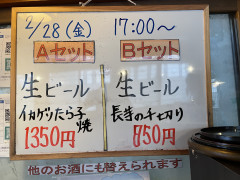 2/28(金) 17:00～
Aセット
生ビール
イカゲソたら子焼
1350円
Bセット
生ビール
長芋の千切り
850円
他のお酒にも替えられます